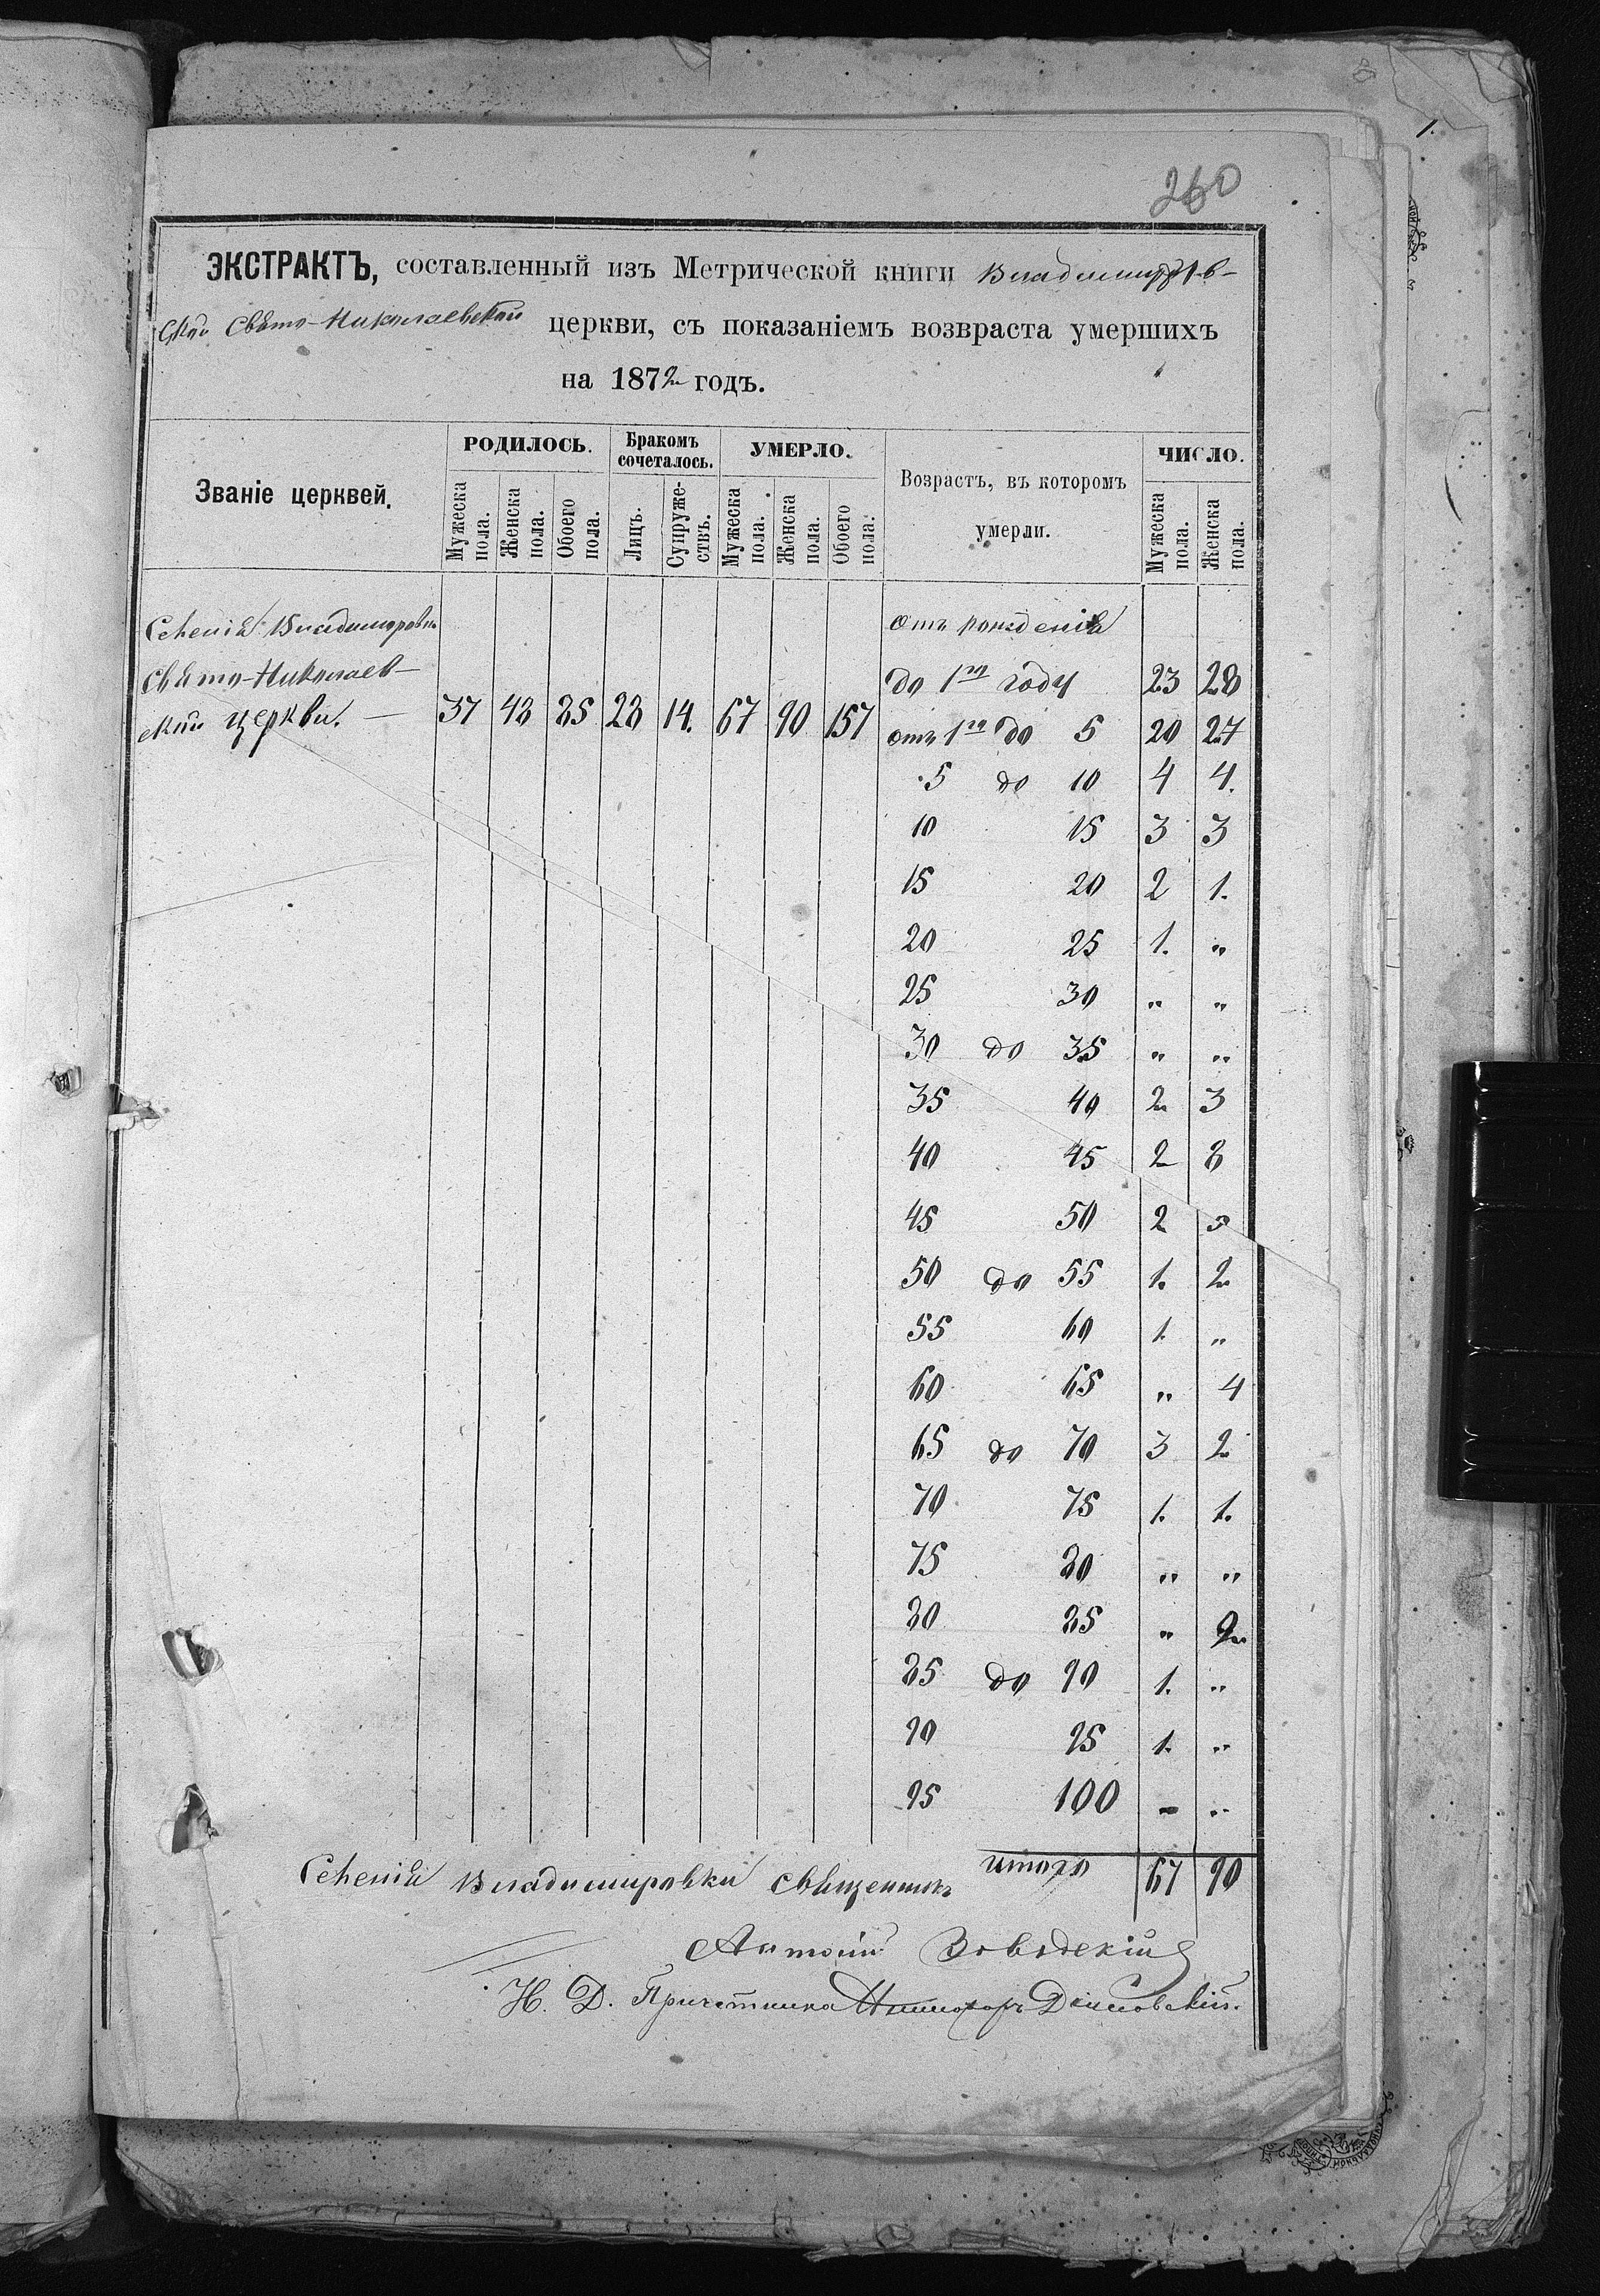 260
1.
ЭКСТРАКТЪ, составленный изъ Метрической книги Владимиров-
ской Свято-Николаевской церкви, съ показаніемъ возвраста умершихъ
на 1872 годъ.
Званіе церквей.
РОДИЛОСЬ.
Бракомъ сочеталось.
УМЕРЛО.
Возрастъ, въ которомъ умерли.
ЧИСЛО.
Мужеска пола.
Женска пола.
Обоего пола.
Лицъ.
Супруже-
ствъ.
Мужеска пола.
Женска пола.
Обоего пола.
Мужеска пола.
Женска пола.
Селенія Владимировки
Свято-Николаев-
ской церкви. — 37 48 85 28 14. 67 90 157
отъ рожденія
до 1го году 23 28
отъ 1го до 5 20 27
5 до 10 4 4.
10 15 3 3
15 20 2 1.
20 25 1. „
25 30 „ „
30 до 35 „ „
35 40 2 3
40 45 2 8
45 50 2 5
50 до 55 1. 2
55 60 1. „
60 65 „ 4
65 до 70 3 2
70 75 1. 1.
75 80 „ „
80 85 „ 2
85 до 90 1. „
90 95 1. „
95 100 „ „
итого 67 90
Селенія Владимировки Священникъ
Антоній
Н. Д. Причетника